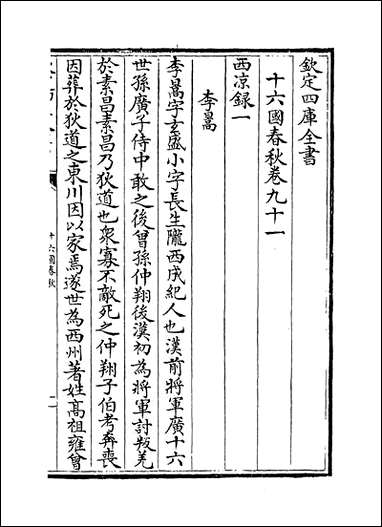 欽定四庫全書
十六國春秋卷九十一
西涼録一
李暠
李暠字玄盛小字長生隴西成紀人也漢前將軍廣十六
世孫廣子侍中敢之後曾孫仲翔後漢初為將軍討叛羌
於素昌素昌乃狄道也衆寡不敵死之仲翔子伯考奔喪
因葬於狄道之東川因以家焉遂世為西州著姓高祖雍曾
十六國春秋